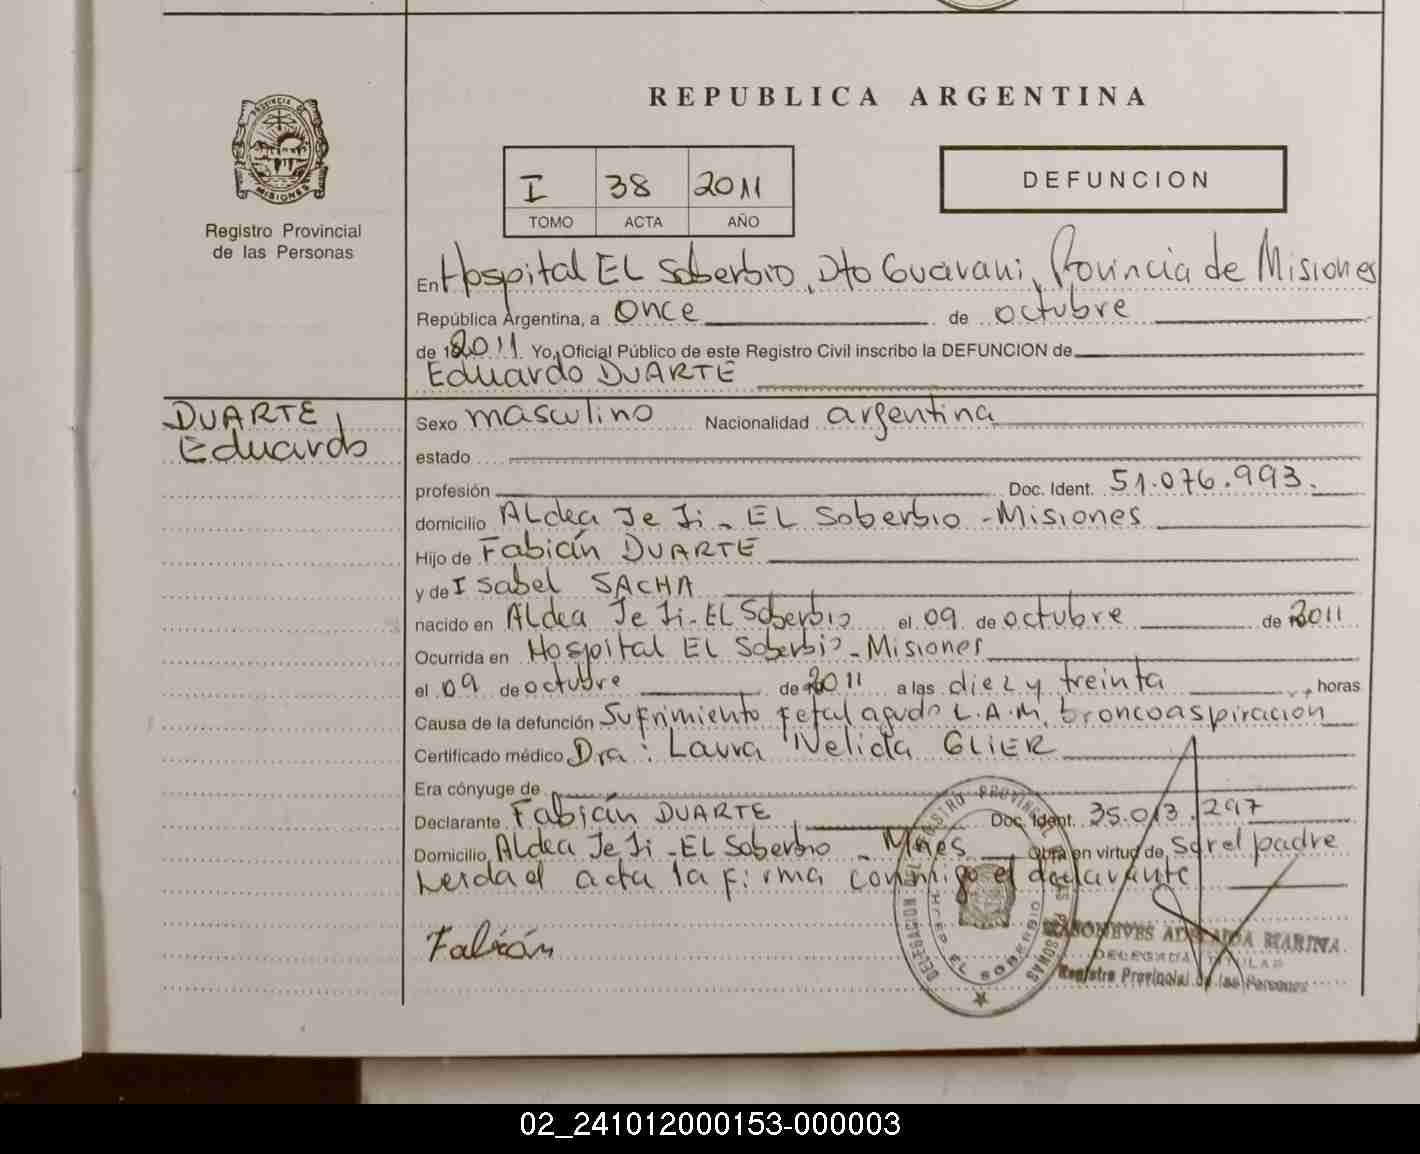 REPUBLICA ARGENTINA
PROVINCIA DE MISIONES
Registro Provincial
de las Personas
I 38 2011
TOMO ACTA AÑO
DEFUNCION
En Hospital EL Soberbio, Dto Guarani, Provincia de Misiones
República Argentina, a once de octubre
de 2011 Yo, Oficial Público de este Registro Civil inscribo la DEFUNCION de
Eduardo DUARTE
DUARTE,
Eduardo
Sexo masculino Nacionalidad argentina
estado
profesión Doc. Ident. 51.076.993.
domicilio ALdea Je Ji - EL Soberbio - Misiones
Hijo de Fabián DUARTE
y de Isabel SACHA
nacido en ALdea Je Ji - EL Soberbio el 09 de octubre de 2011
Ocurrida en Hospital EL Soberbio - Misiones
el 09 de octubre de 2011 a las diez y treinta horas
Causa de la defunción Sufrimiento fetal agudo L.A.M. broncoaspiracion
Certificado médico Dra: Laura Nelida GLIER
Era cónyuge de
Declarante Fabián DUARTE Doc. Ident. 35.013.297
Domicilio ALdea Je Ji - EL Soberbio - Mnes Obra en virtud de ser el padre
Leida el acta la firma conmigo el declarante
Fabián
REGISTRO PROVINCIAL DE LAS PERSONAS
DELEGACION
EL SOBERBIO
MARINA
DELEGADA TITULAR
Registro Provincial de las Personas
02_241012000153-000003